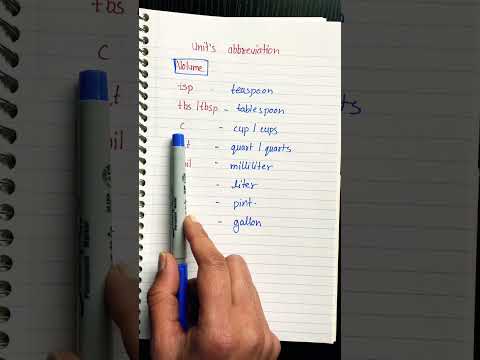 Unit's abbreviation
Volume
tsp - teaspoon
tbs / tbsp - tablespoon
c - cup / cups
t - quart / quarts
- milliliter
- liter
- pint
- gallon